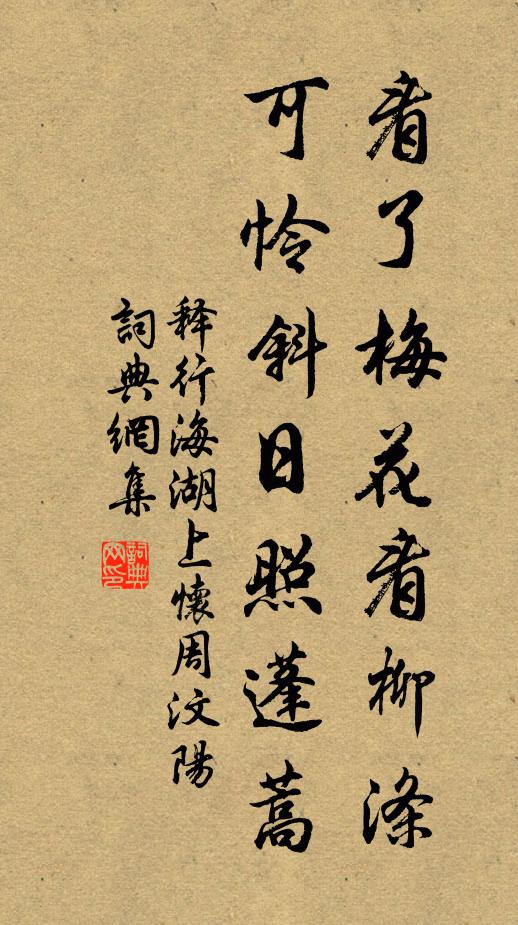 看了梅花看柳涤
可怜斜日照蓬蒿
释行海湖上懷周汶陽
詞典網集
詞典网印